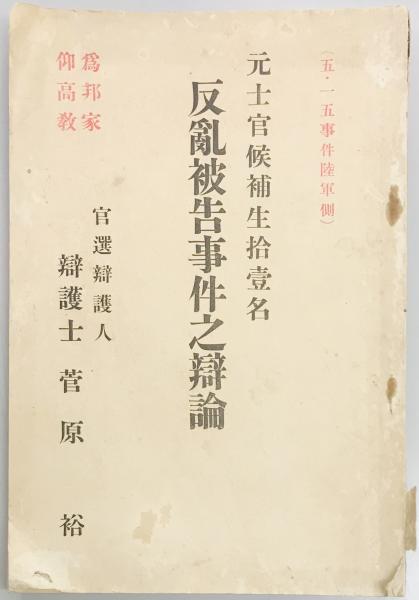 (五・一五事件陸軍側)
元士官候補生拾壹名
反亂被告事件之辯論
官選辯護人
辯護士 菅原 裕
爲邦家
仰高敎